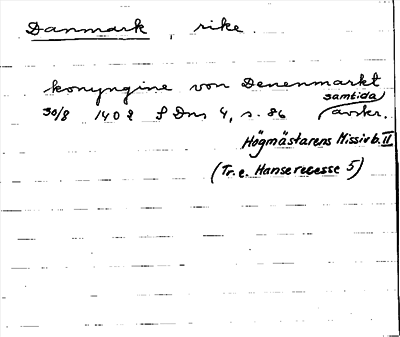 Danmark, rike.
konyngine von Denenmarkt
30/8 1402 SDns 4, s. 86 (samtida avskr.
Högmästarens Missivb. II
(Tr. e. Hanserecesse 5)